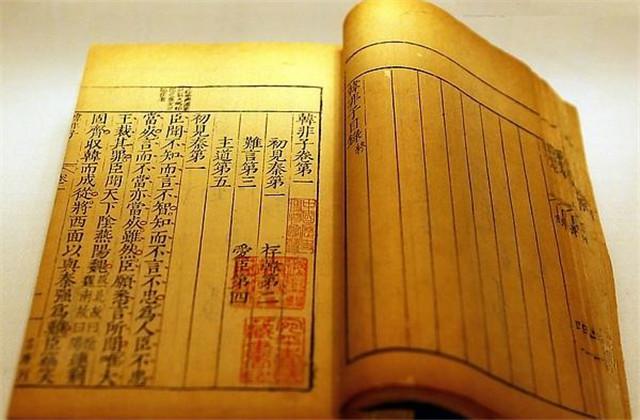 韓非子目錄終
韓非子卷第一
初見秦第一 存韓第二
難言第三 愛臣第四
主道第五
初見秦第一
臣聞不知而言不智知而不言不忠為人臣不忠
當死言而不當亦當死雖然臣願悉言所聞唯大
王裁其罪臣聞天下陰燕陽魏燕北故曰陰魏南故曰陽連荊
固齊收韓而成從將西面以與秦强為